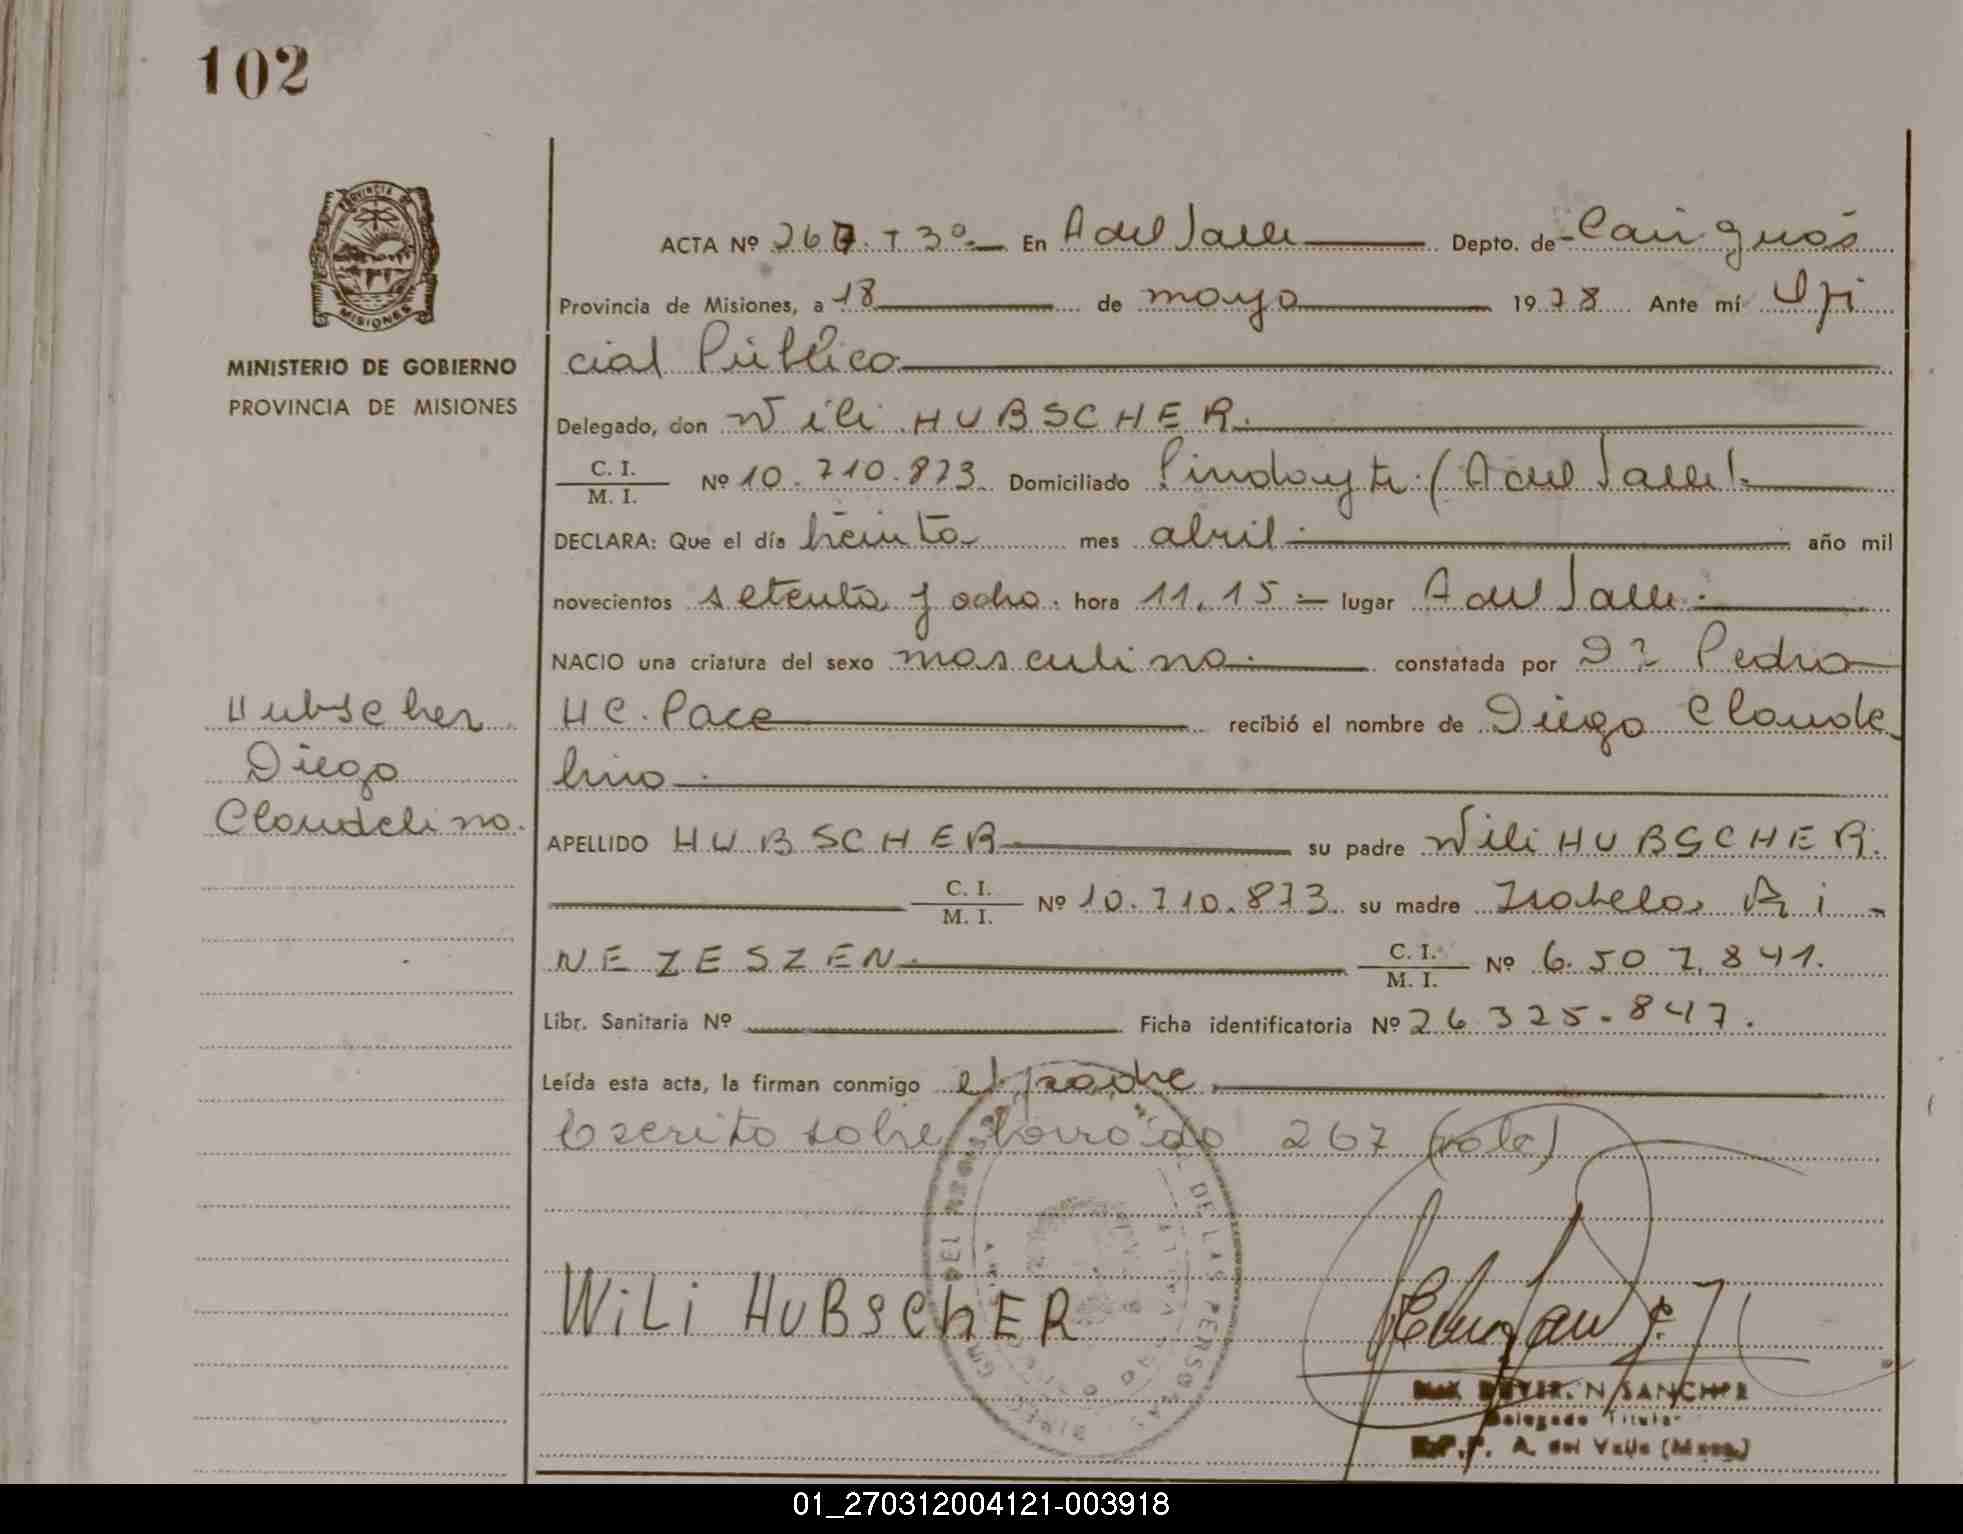 102
ACTA Nº 267. T 3º. En A del Valle Depto. de Cainguás
Provincia de Misiones, a 18 de mayo 1978 Ante mí Ofi
cial Público
MINISTERIO DE GOBIERNO
PROVINCIA DE MISIONES
Delegado, don Wili HUBSCHER.
C. I.
M. I. Nº 10.710.873. Domiciliado Pindayti (A del Valle).
DECLARA: Que el día treinta mes abril año mil
novecientos setenta y ocho. hora 11.15 lugar A del Valle.
NACIO una criatura del sexo masculino. constatada por Dr Pedro
H C. Pace recibió el nombre de Diego Claude
lino.
Hubscher
Diego
Claudelino.
APELLIDO HUBSCHER su padre Wili HUBSCHER.
C. I.
M. I. Nº 10.710.873. su madre Isabela Ri-
NEZESZEN. C. I.
M. I. Nº 6.507.841.
Libr. Sanitaria Nº Ficha identificatoria Nº 26325.847.
Leída esta acta, la firman conmigo el padre.
Escrito sobre borrado 267 (vale)
WiLi HUBSCHER
DE LAS PERSONAS
SANCHEZ
Delegado Titular
A. del Valle (Mnes.)
MISIONES
01_270312004121-003918